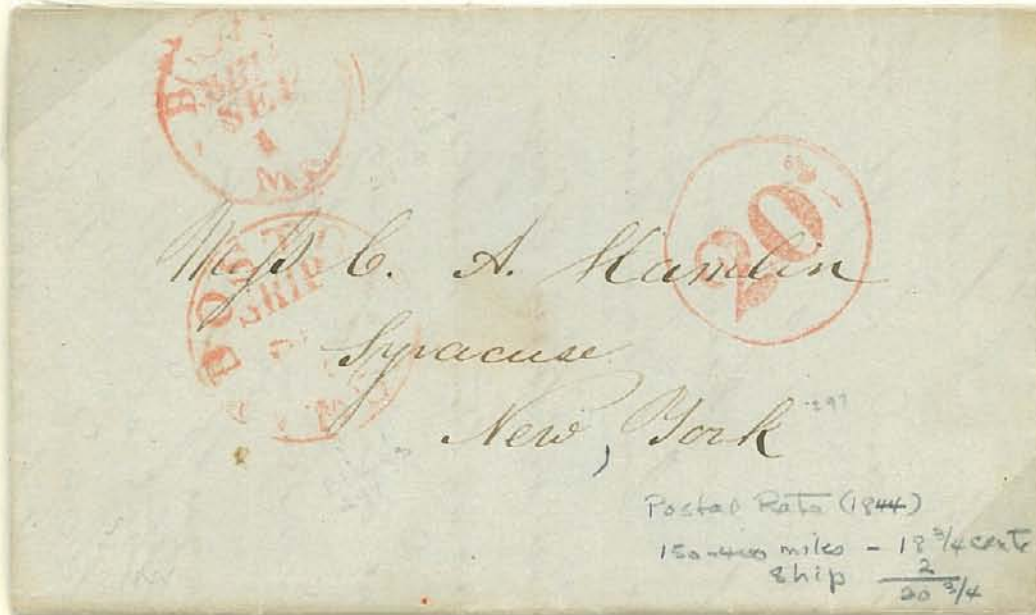 BOS
SHIP
SEP
1
MS
BOST
SHIP
MS
20
Miss C. A. Hamlin
Syracuse
New, York
297
Postal Rate (1844)
150-400 miles - 18 3/4 cents
Ship 2
20 3/4